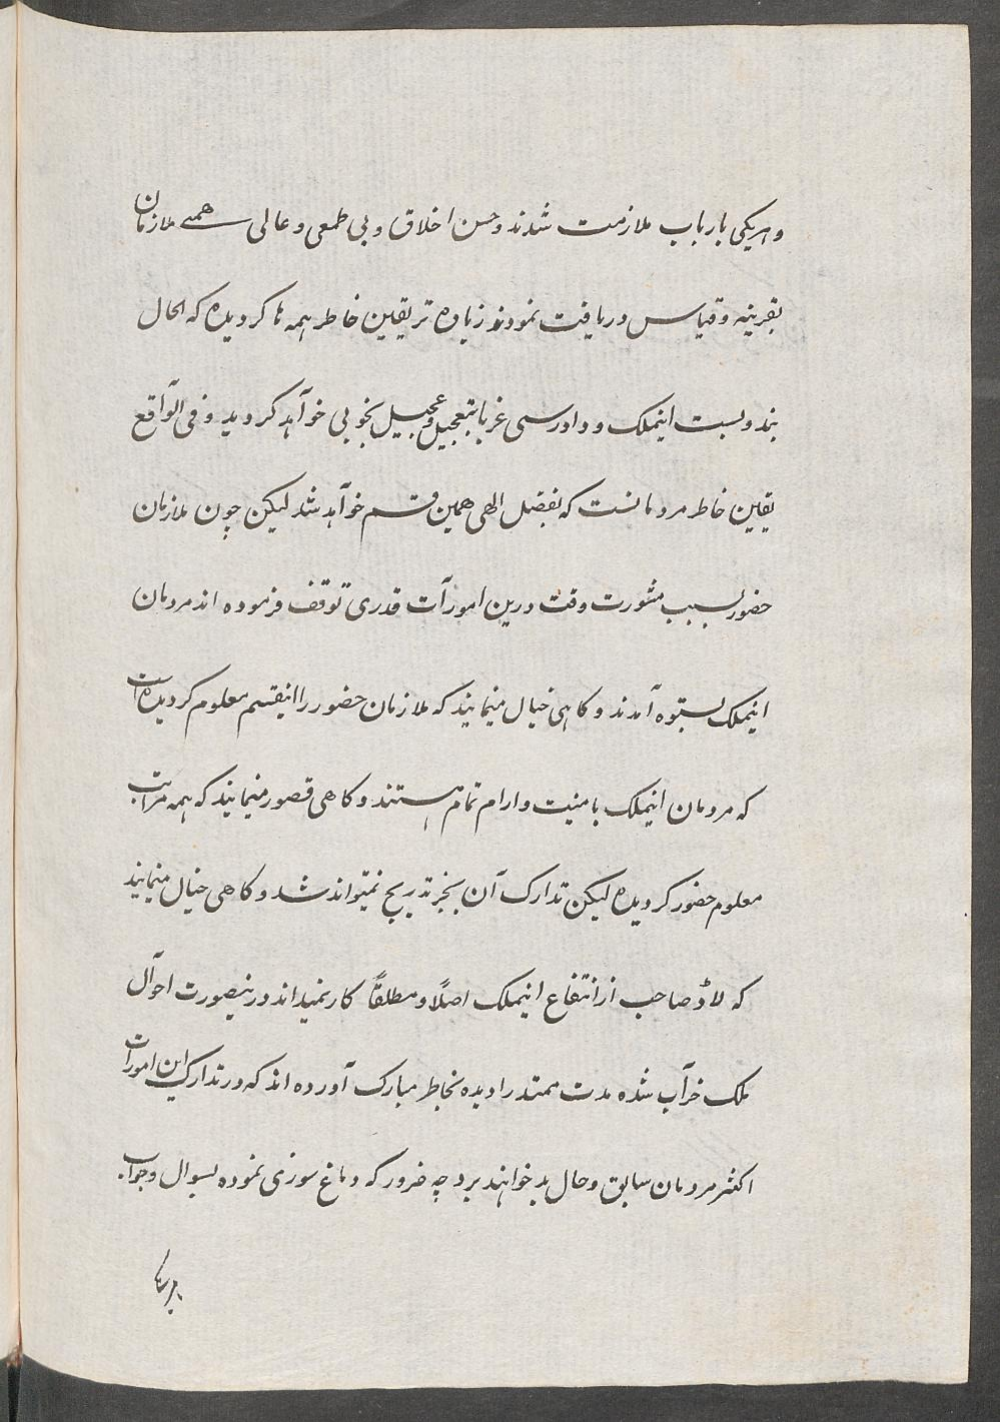 و هریکی باریاب ملازمت شدند و حسن اخلاق و بی طمعی و عالی همتی ملازمان
بقرینه و قیاس دریافت نمودند زیاده تر یقین خاطر همه ها کردیده که الحال
بندوبست اینملک و دادرسی غربا بتعجیل وعجیل بخوبی خواهد کردید و فی الواقع
یقین خاطر مردمانست که بفضل الهی همین قسم خواهد شد لیکن چون ملازمان
حضور بسبب مشورت وقت درین امورات قدری توقف فرموده اند مردمان
اینملک بستوه آمدند و کاهی خیال مینمایند که ملازمان حضور را اینقسم معلوم کردیده است
که مردمان اینملک بامنیت و ارام تمام هستند و کاهی قصور مینمایند که همه مراتب
معلوم حضور کردیده لیکن تدارک آن بجز تدریج نمیتواند شد و کاهی خیال مینمایند
که لاڈ صاحب از انتفاع اینملک اصلًا و مطلقاً کار نمیداند درینصورت احوال
ملک خراب شده مدت ممتد را دیده بخاطر مبارک آورده اند که در تدارک این امورات
اکثر مردمان سابق و حال بد خواهند برد چه ضرور که دماغ سوزی نموده بسوال و جواب